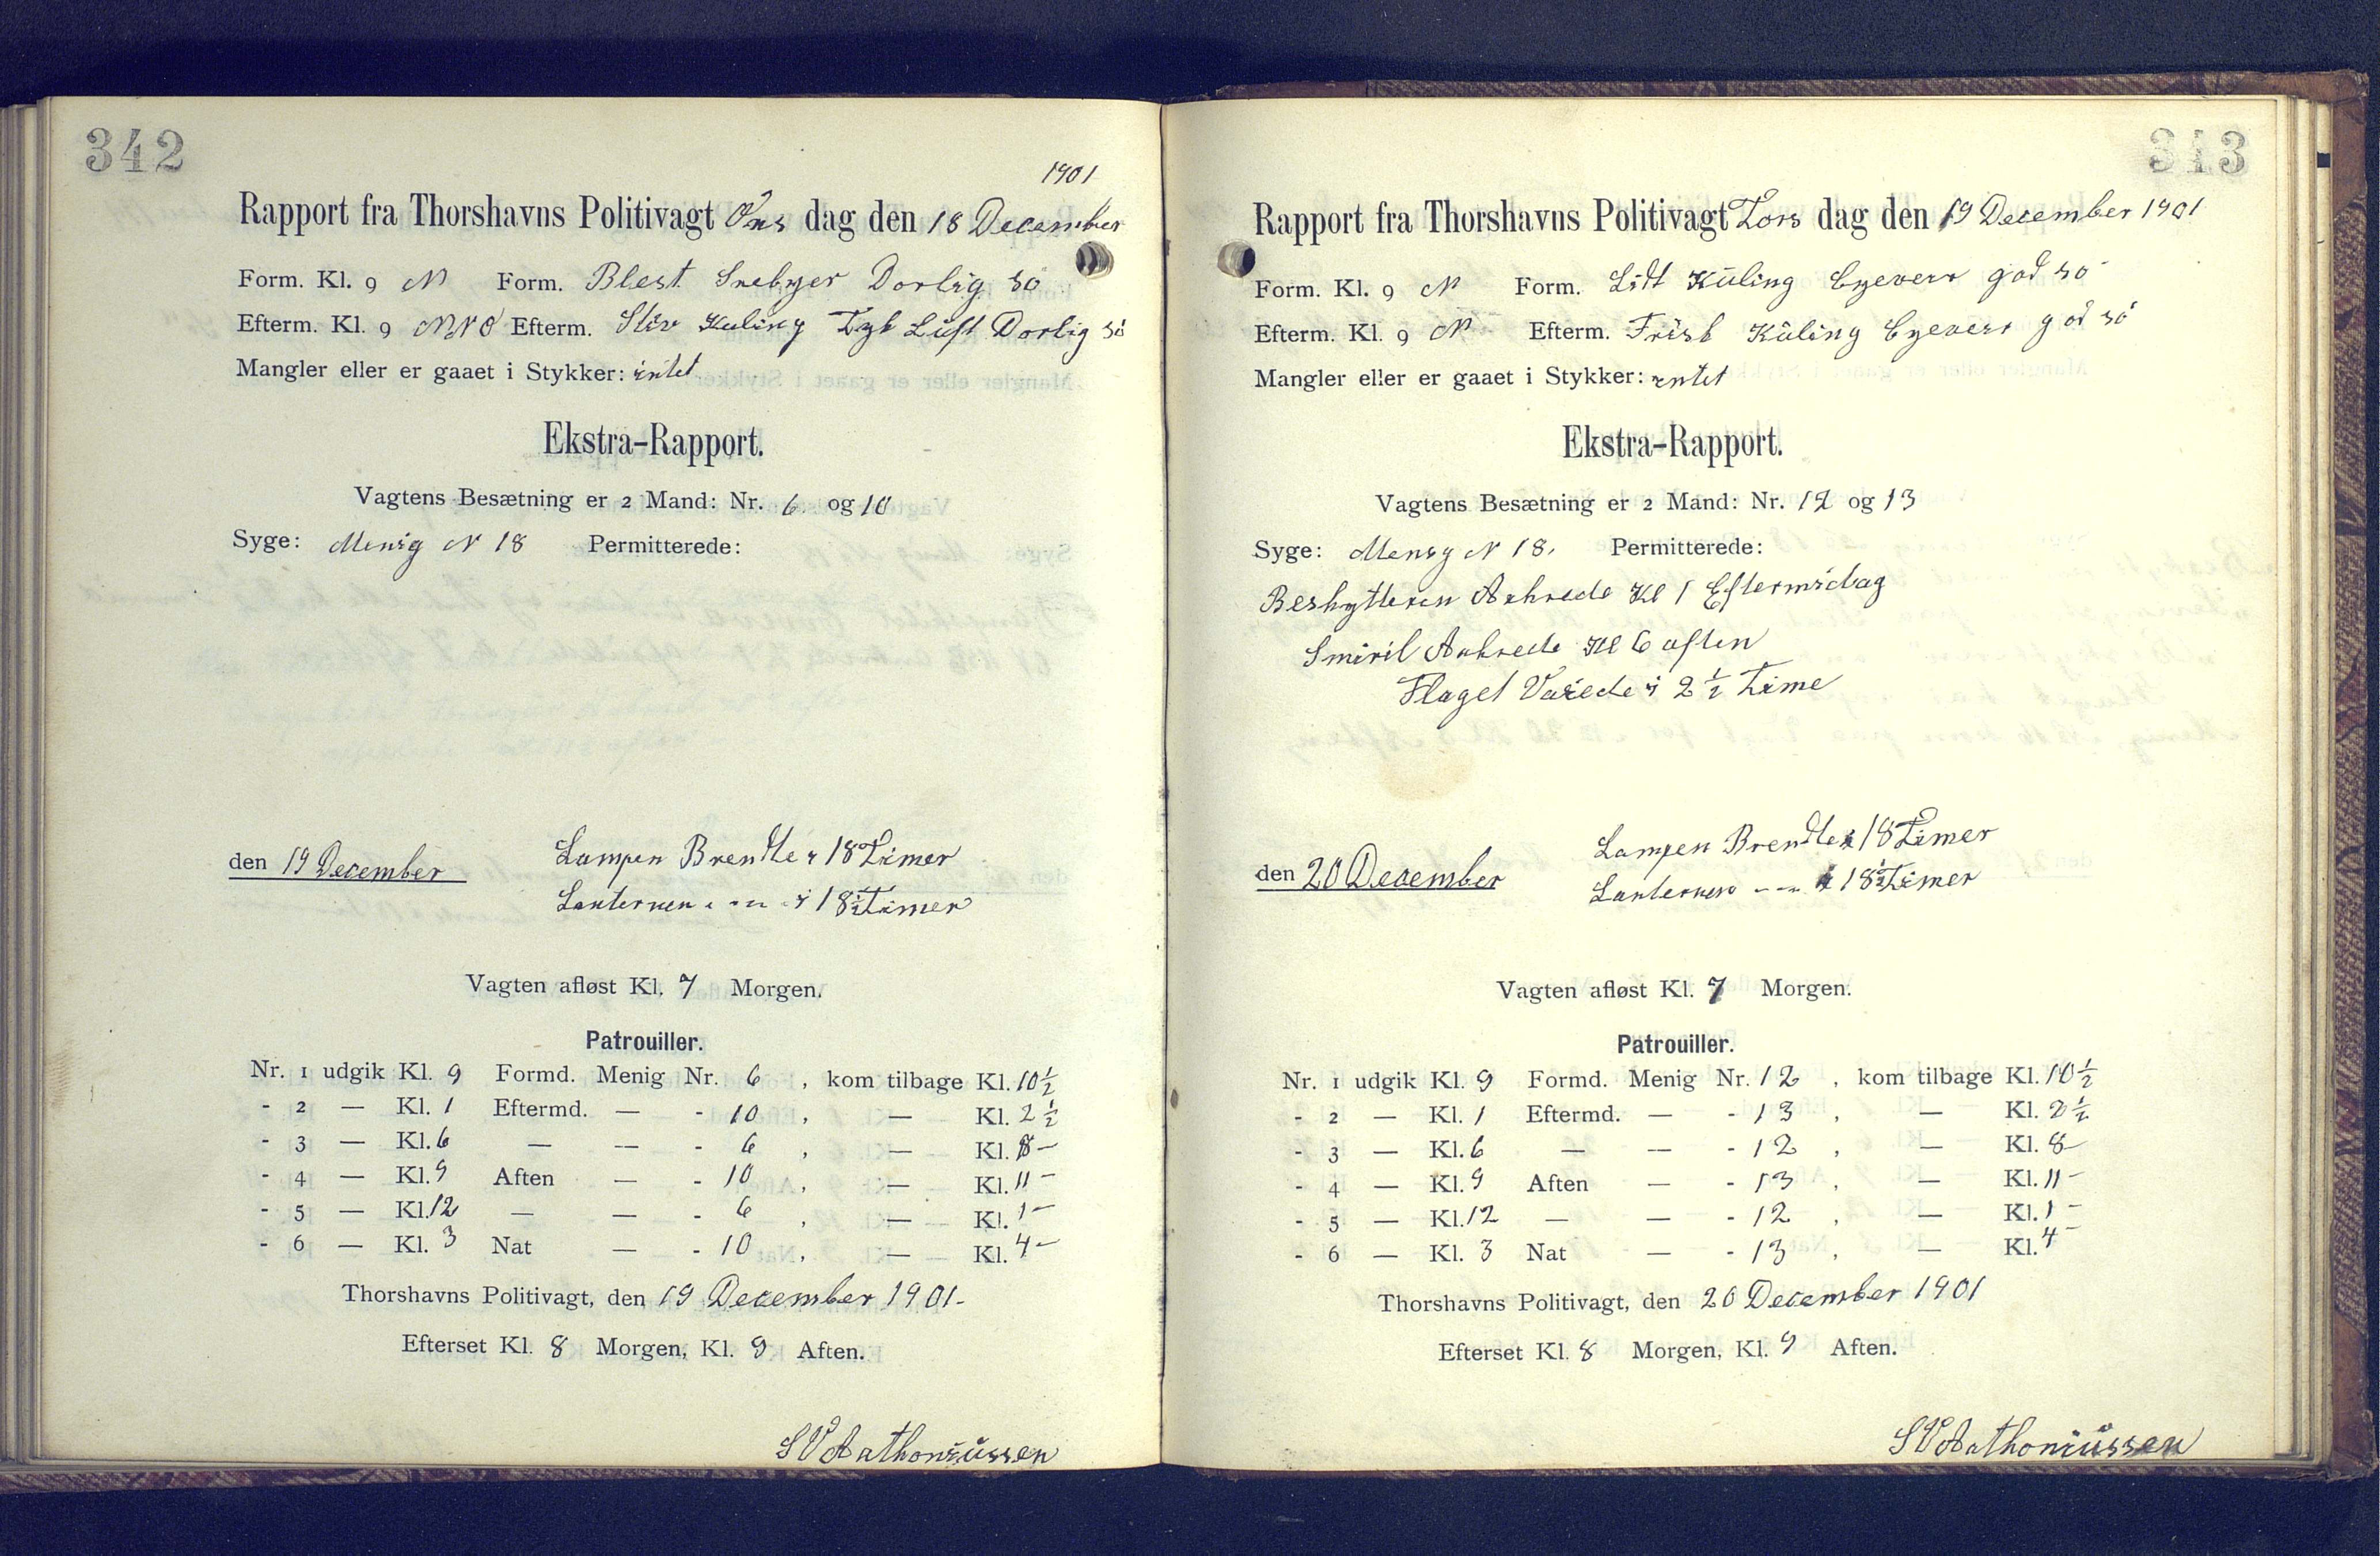 342
1901
Rapport fra Thorshavns Politivagt Ons dag den 18 December
Form. Kl. 9 N Form. Blest Snebyer Dorlig sö
Efterm. Kl. 9 NNO Efterm. Stiv Kuling Tyk Luft Dorlig sö
Mangler eller er gaaet i Stykker: intet
Ekstra-Rapport.
Vagtens Besætning er 2 Mand: Nr. 6 og 10
Syge: Menig N 18 Permitterede:
den 19 December
Lampen Brendte i 18 Timer
Lanternen - - - i 18½ Timer
Vagten afløst Kl. 7 Morgen.
Patrouiller.
Nr. 1 udgik Kl. 9 Formd. Menig Nr. 6 , kom tilbage Kl. 10½
- 2 — Kl. 1 Eftermd. — - 10 , — Kl. 2½
- 3 — Kl. 6 — — - 6 , — Kl. 8 -
- 4 — Kl. 9 Aften — - 10 , — Kl. 11 -
- 5 — Kl. 12 — — - 6 , — Kl. 1 -
- 6 — Kl. 3 Nat — - 10 , — Kl. 4 -
Thorshavns Politivagt, den 19 December 1901-
Efterset Kl. 8 Morgen, Kl. 9 Aften.
SVAnthoniussen
343
Rapport fra Thorshavns Politivagt Tors dag den 19 December 1901
Form. Kl. 9 N Form. Lidt Kuling Byeveir god sö
Efterm. Kl. 9 N Efterm. Frisk Kuling Byeveir god sö
Mangler eller er gaaet i Stykker: intet
Ekstra-Rapport.
Vagtens Besætning er 2 Mand: Nr. 12 og 13
Syge: Menig N 18. Permitterede:
Beskytteren Ankrede Kl 1 Eftermidag
Smiril Ankrede Kl 6 aften
Flaget Vaiede i 2½ Time
den 20 December
Lampen Brendte i 18 Timer
Lanternen - - - i 18½ Timer
Vagten afløst Kl. 7 Morgen.
Patrouiller.
Nr. 1 udgik Kl. 9 Formd. Menig Nr. 12 , kom tilbage Kl. 10½
- 2 — Kl. 1 Eftermd. — - 13 , — Kl. 2½
- 3 — Kl. 6 — — - 12 , — Kl. 8 -
- 4 — Kl. 9 Aften — - 13 , — Kl. 11 -
- 5 — Kl. 12 — — - 12 , — Kl. 1 -
- 6 — Kl. 3 Nat — - 13 , — Kl. 4 -
Thorshavns Politivagt, den 20 December 1901
Efterset Kl. 8 Morgen, Kl. 9 Aften.
SVAnthoniussen